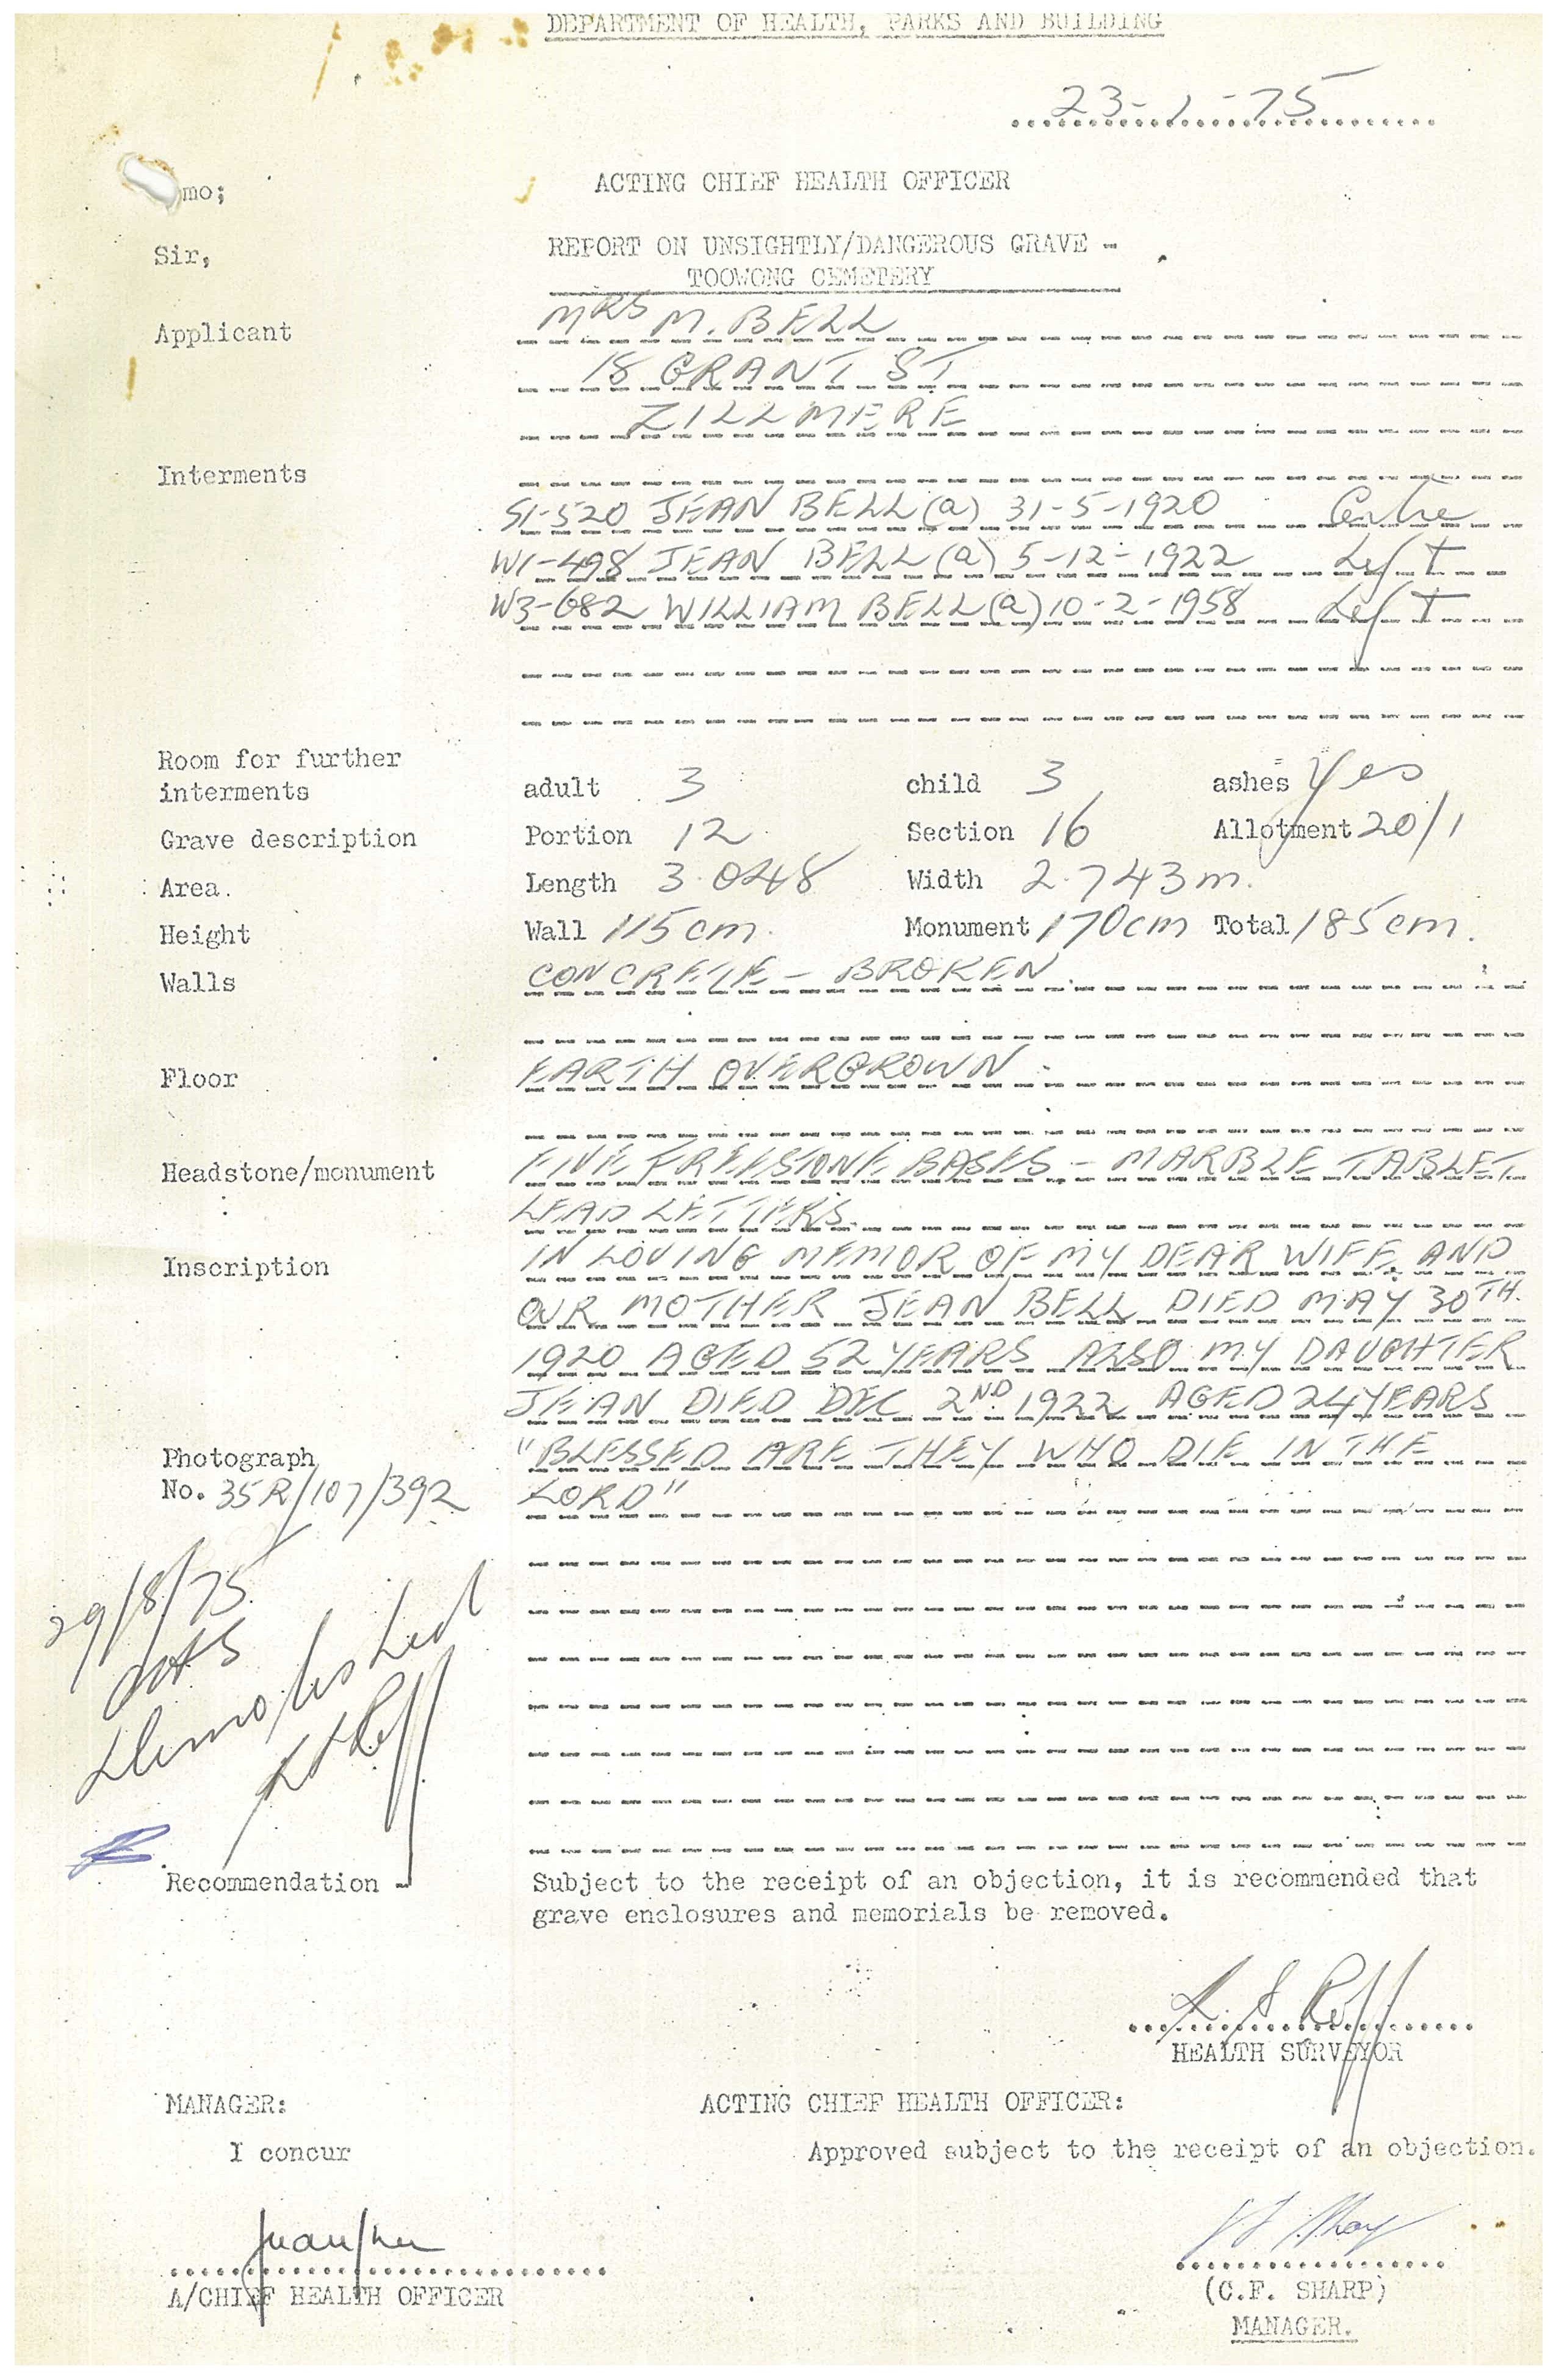 DEPARTMENT OF HEALTH, PARKS AND BUILDING
23-1-75
mo;
ACTING CHIEF HEALTH OFFICER
Sir,
REPORT ON UNSIGHTLY/DANGEROUS GRAVE -
TOOWONG CEMETERY
Applicant MRS M. BELL
18 GRANT ST
ZILLMERE
Interments
S1-520 JEAN BELL (a) 31-5-1920 Centre
W1-498 JEAN BELL (a) 5-12-1922 Left
W3-682 WILLIAM BELL (a) 10-2-1958 Left
Room for further
interments adult 3 child 3 ashes Yes
Grave description Portion 12 Section 16 Allotment 20/1
Area. Length 3.048 Width 2.743m.
Height Wall 115cm. Monument 170cm Total 185cm.
Walls CONCRETE - BROKEN.
Floor EARTH OVERGROWN
Headstone/monument FIVE FREESTONE BASES - MARBLE TABLET
LEAD LETTERS.
Inscription IN LOVING MEMOR OF MY DEAR WIFE AND
OUR MOTHER JEAN BELL DIED MAY 30TH.
1920 AGED 52 YEARS ALSO MY DAUGHTER
JEAN DIED DEC 2ND 1922 AGED 24 YEARS
Photograph "BLESSED ARE THEY WHO DIE IN THE
No. 35R/107/392 LORD"
29/8/75
demolished
Recommendation - Subject to the receipt of an objection, it is recommended that
grave enclosures and memorials be removed.
HEALTH SURVEYOR
MANAGER: ACTING CHIEF HEALTH OFFICER:
I concur Approved subject to the receipt of an objection.
A/CHIEF HEALTH OFFICER (C.F. SHARP)
MANAGER.